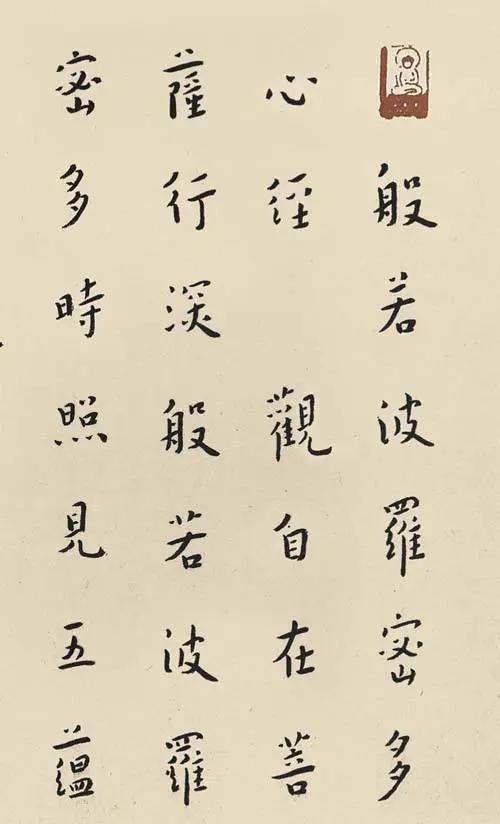 般若波羅密多
心經 觀自在菩
薩行深般若波羅
密多時照見五蘊